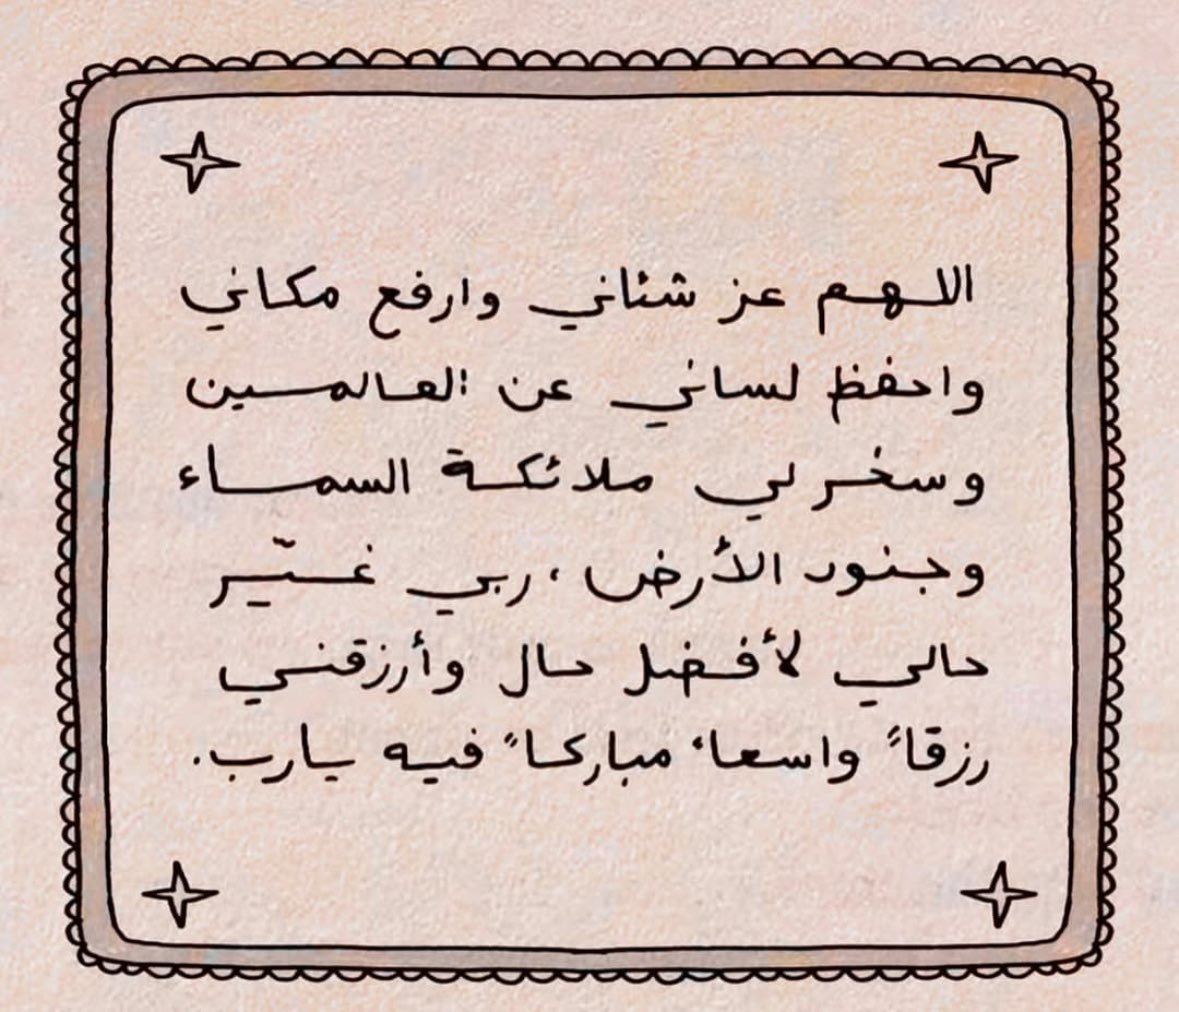 اللهم عز شئاني وارفع مكاني
واحفظ لساني عن العالمين
وسخر لي ملائكة السماء
وجنود الأرض، ربي غيّر
حالي لأفضل حال وأرزقني
رزقاً واسعاً مباركاً فيه يارب.